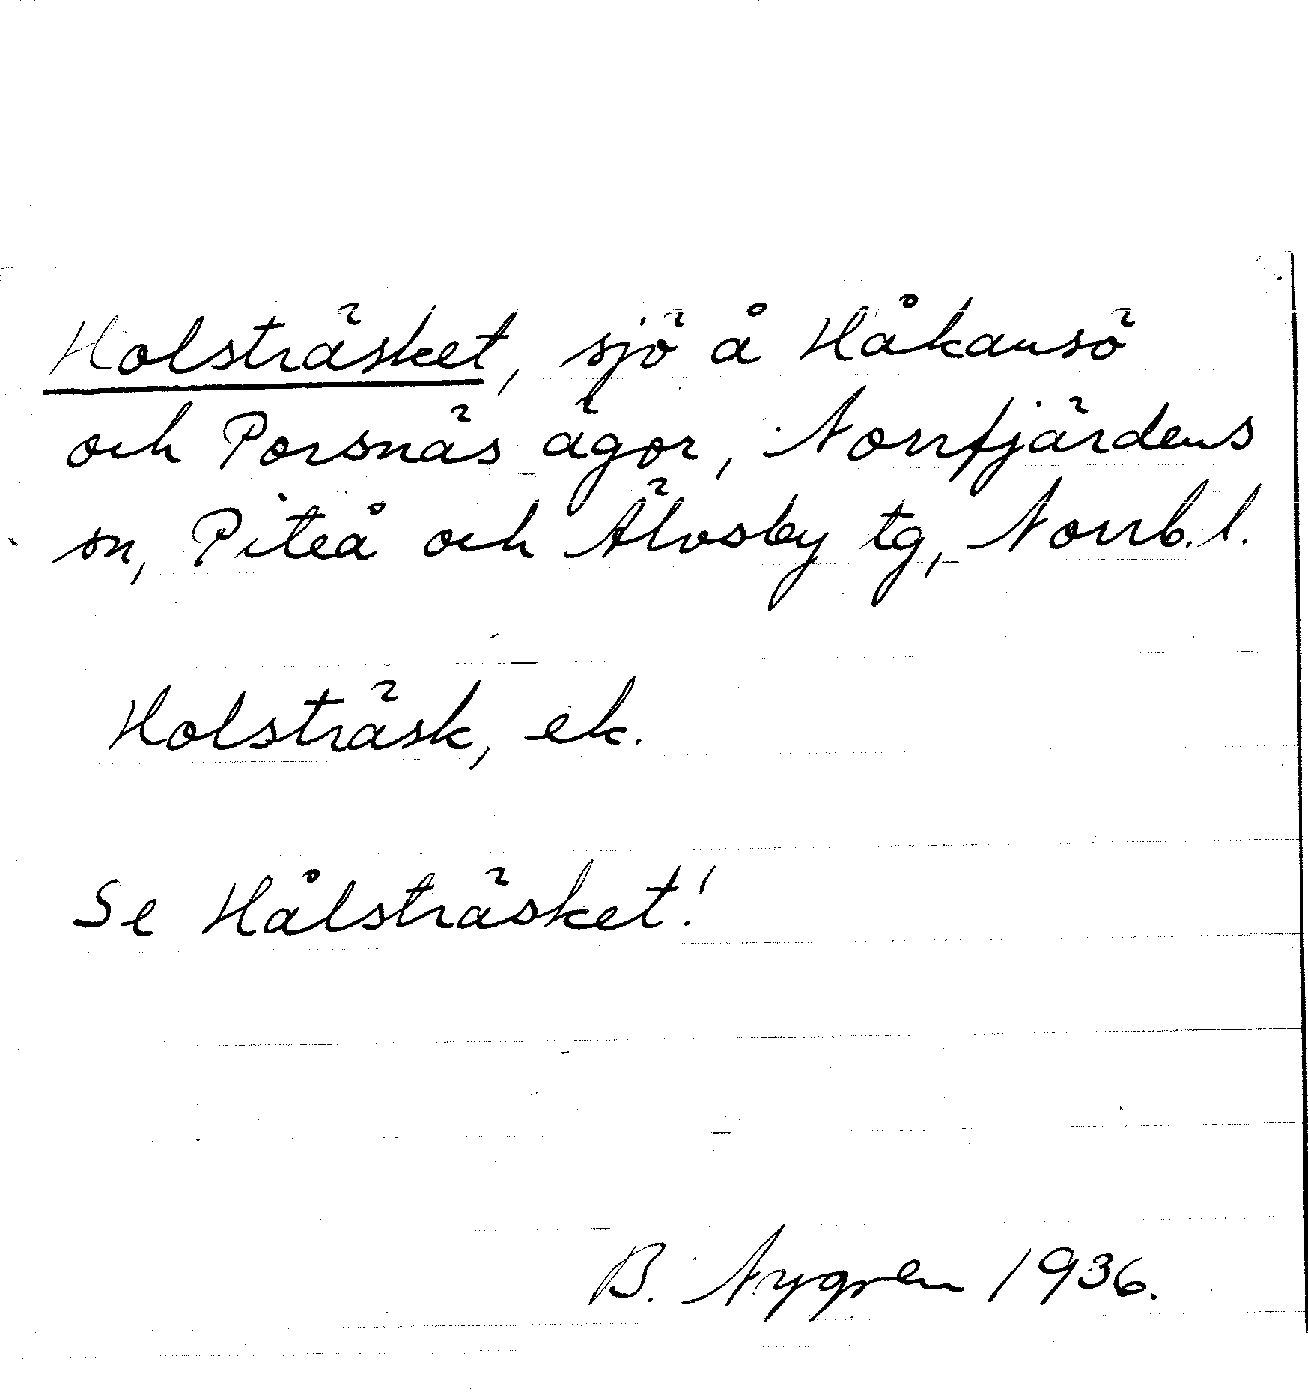 Holsträsket, sjö å Håkansö
och Porsnäs ägor, Norrfjärdens
sn, Piteå och Älvsby tg, Norrb. l.
Holsträsk, ek.
Se Hålsträsket!
B. Nygren 1936.